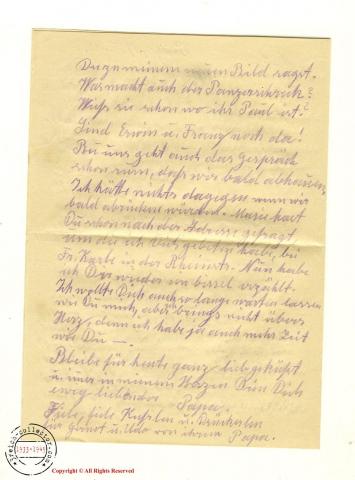 Du zu meinem neuen Bild sagst.
Was macht auch der Panzerschreck?
Weiß sie schon wo ihr Paul ist?
Sind Erwin u. Franz noch da!
Bei uns geht auch das gespräch
schon rum, daß wir bald abhauen.
Ich hätte nichts dagegen wenn wir
bald abrücken würden. Marie hast
Du schon nach der Adresse gefragt
um die ich Dich gebeten habe, bei
Fr. Karbe in der Nun habe
ich Dir wieder ein bissel erzählt.
Ich wollte Dich auch so lange warten lassen
wie Du mich, aber brings nicht übers
Herz, denn ich habe ja auch mehr Zeit
wie Du —.
Bleibe für heute ganz lieb geküßt
u. immer in meinem Herzen Dein Dich
ewig liebender Papa.
Viele, viele Küsslein u. Drückerlein
für u. Udo von ihrem Papa.
reich-collector.com
1933-1945
Copyright © All Rights Reserved